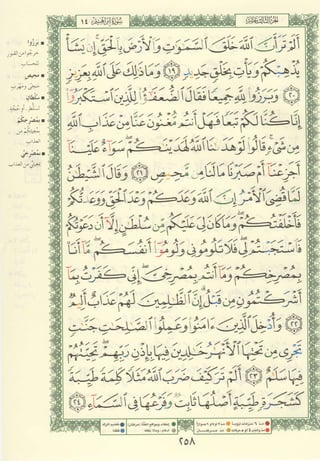 سورة إبراهيم ١٤
الجزء الثالث عشر
أَلَمْ تَرَ أَنَّ ٱللَّهَ خَلَقَ ٱلسَّمَٰوَٰتِ وَٱلْأَرْضَ بِٱلْحَقِّ ۚ إِن يَشَأْ
يُذْهِبْكُمْ وَيَأْتِ بِخَلْقٍ جَدِيدٍ ١٩ وَمَا ذَٰلِكَ عَلَى ٱللَّهِ بِعَزِيزٍ
٢٠ وَبَرَزُوا۟ لِلَّهِ جَمِيعًا فَقَالَ ٱلضُّعَفَٰٓؤُا۟ لِلَّذِينَ ٱسْتَكْبَرُوٓا۟
إِنَّا كُنَّا لَكُمْ تَبَعًا فَهَلْ أَنتُم مُّغْنُونَ عَنَّا مِنْ عَذَابِ ٱللَّهِ
مِن شَىْءٍ ۚ قَالُوا۟ لَوْ هَدَىٰنَا ٱللَّهُ لَهَدَيْنَٰكُمْ ۖ سَوَآءٌ عَلَيْنَآ
أَجَزِعْنَآ أَمْ صَبَرْنَا مَا لَنَا مِن مَّحِيصٍ ٢١ وَقَالَ ٱلشَّيْطَٰنُ
لَمَّا قُضِىَ ٱلْأَمْرُ إِنَّ ٱللَّهَ وَعَدَكُمْ وَعْدَ ٱلْحَقِّ وَوَعَدتُّكُمْ
فَأَخْلَفْتُكُمْ ۖ وَمَا كَانَ لِىَ عَلَيْكُم مِّن سُلْطَٰنٍ إِلَّآ أَن دَعَوْتُكُمْ
فَٱسْتَجَبْتُمْ لِى ۖ فَلَا تَلُومُونِى وَلُومُوٓا۟ أَنفُسَكُم ۖ مَّآ أَنَا۠
بِمُصْرِخِكُمْ وَمَآ أَنتُم بِمُصْرِخِىَّ ۖ إِنِّى كَفَرْتُ بِمَآ
أَشْرَكْتُمُونِ مِن قَبْلُ ۗ إِنَّ ٱلظَّٰلِمِينَ لَهُمْ عَذَابٌ أَلِيمٌ
٢٢ وَأُدْخِلَ ٱلَّذِينَ ءَامَنُوا۟ وَعَمِلُوا۟ ٱلصَّٰلِحَٰتِ جَنَّٰتٍ
تَجْرِى مِن تَحْتِهَا ٱلْأَنْهَٰرُ خَٰلِدِينَ فِيهَا بِإِذْنِ رَبِّهِمْ ۖ تَحِيَّتُهُمْ
فِيهَا سَلَٰمٌ ٢٣ أَلَمْ تَرَ كَيْفَ ضَرَبَ ٱللَّهُ مَثَلًا كَلِمَةً طَيِّبَةً
كَشَجَرَةٍ طَيِّبَةٍ أَصْلُهَا ثَابِتٌ وَفَرْعُهَا فِى ٱلسَّمَآءِ ٢٤
برزوا
محيص
سلطان
بمصرخكم
بمصرخي
٢٥٨